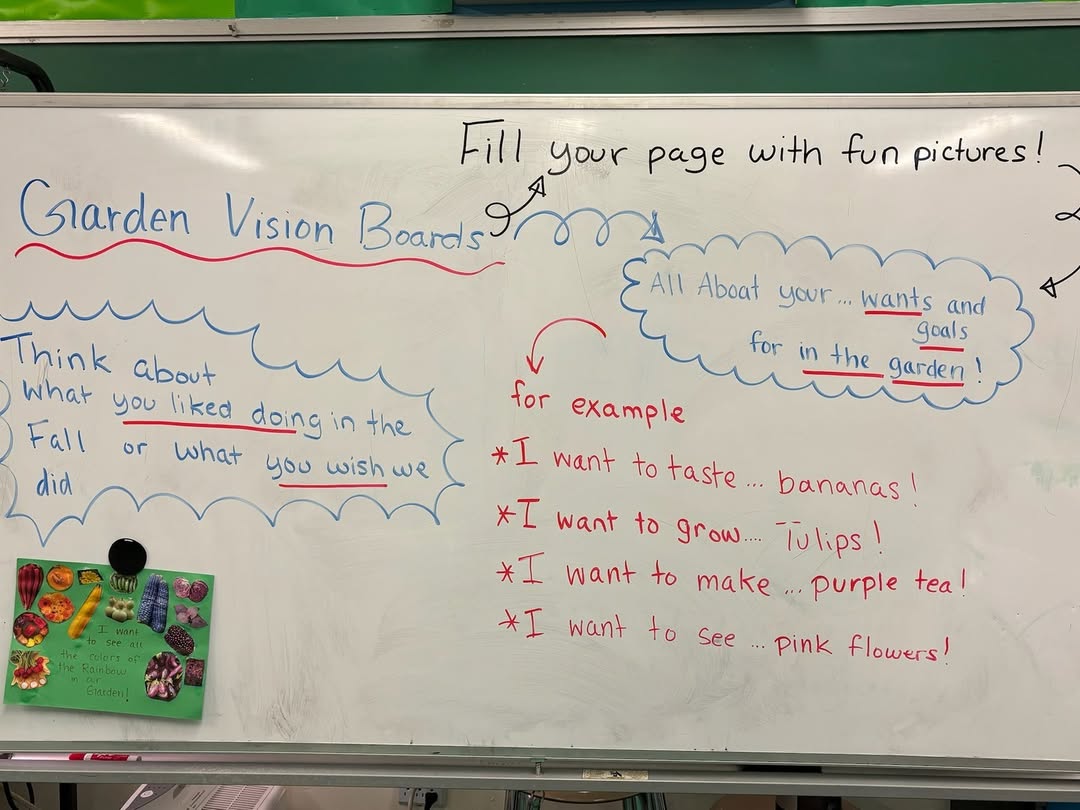 Fill your page with fun pictures!
Garden Vision Boards
All About your... wants and
goals
for in the garden!
Think about
what you liked doing in the
Fall or what you wish we
did
for example
*I want to taste... bananas!
*I want to grow.... Tulips!
*I want to make... purple tea!
*I want to see... pink flowers!
I want
to see all
the colors of
the Rainbow
in our
Garden!